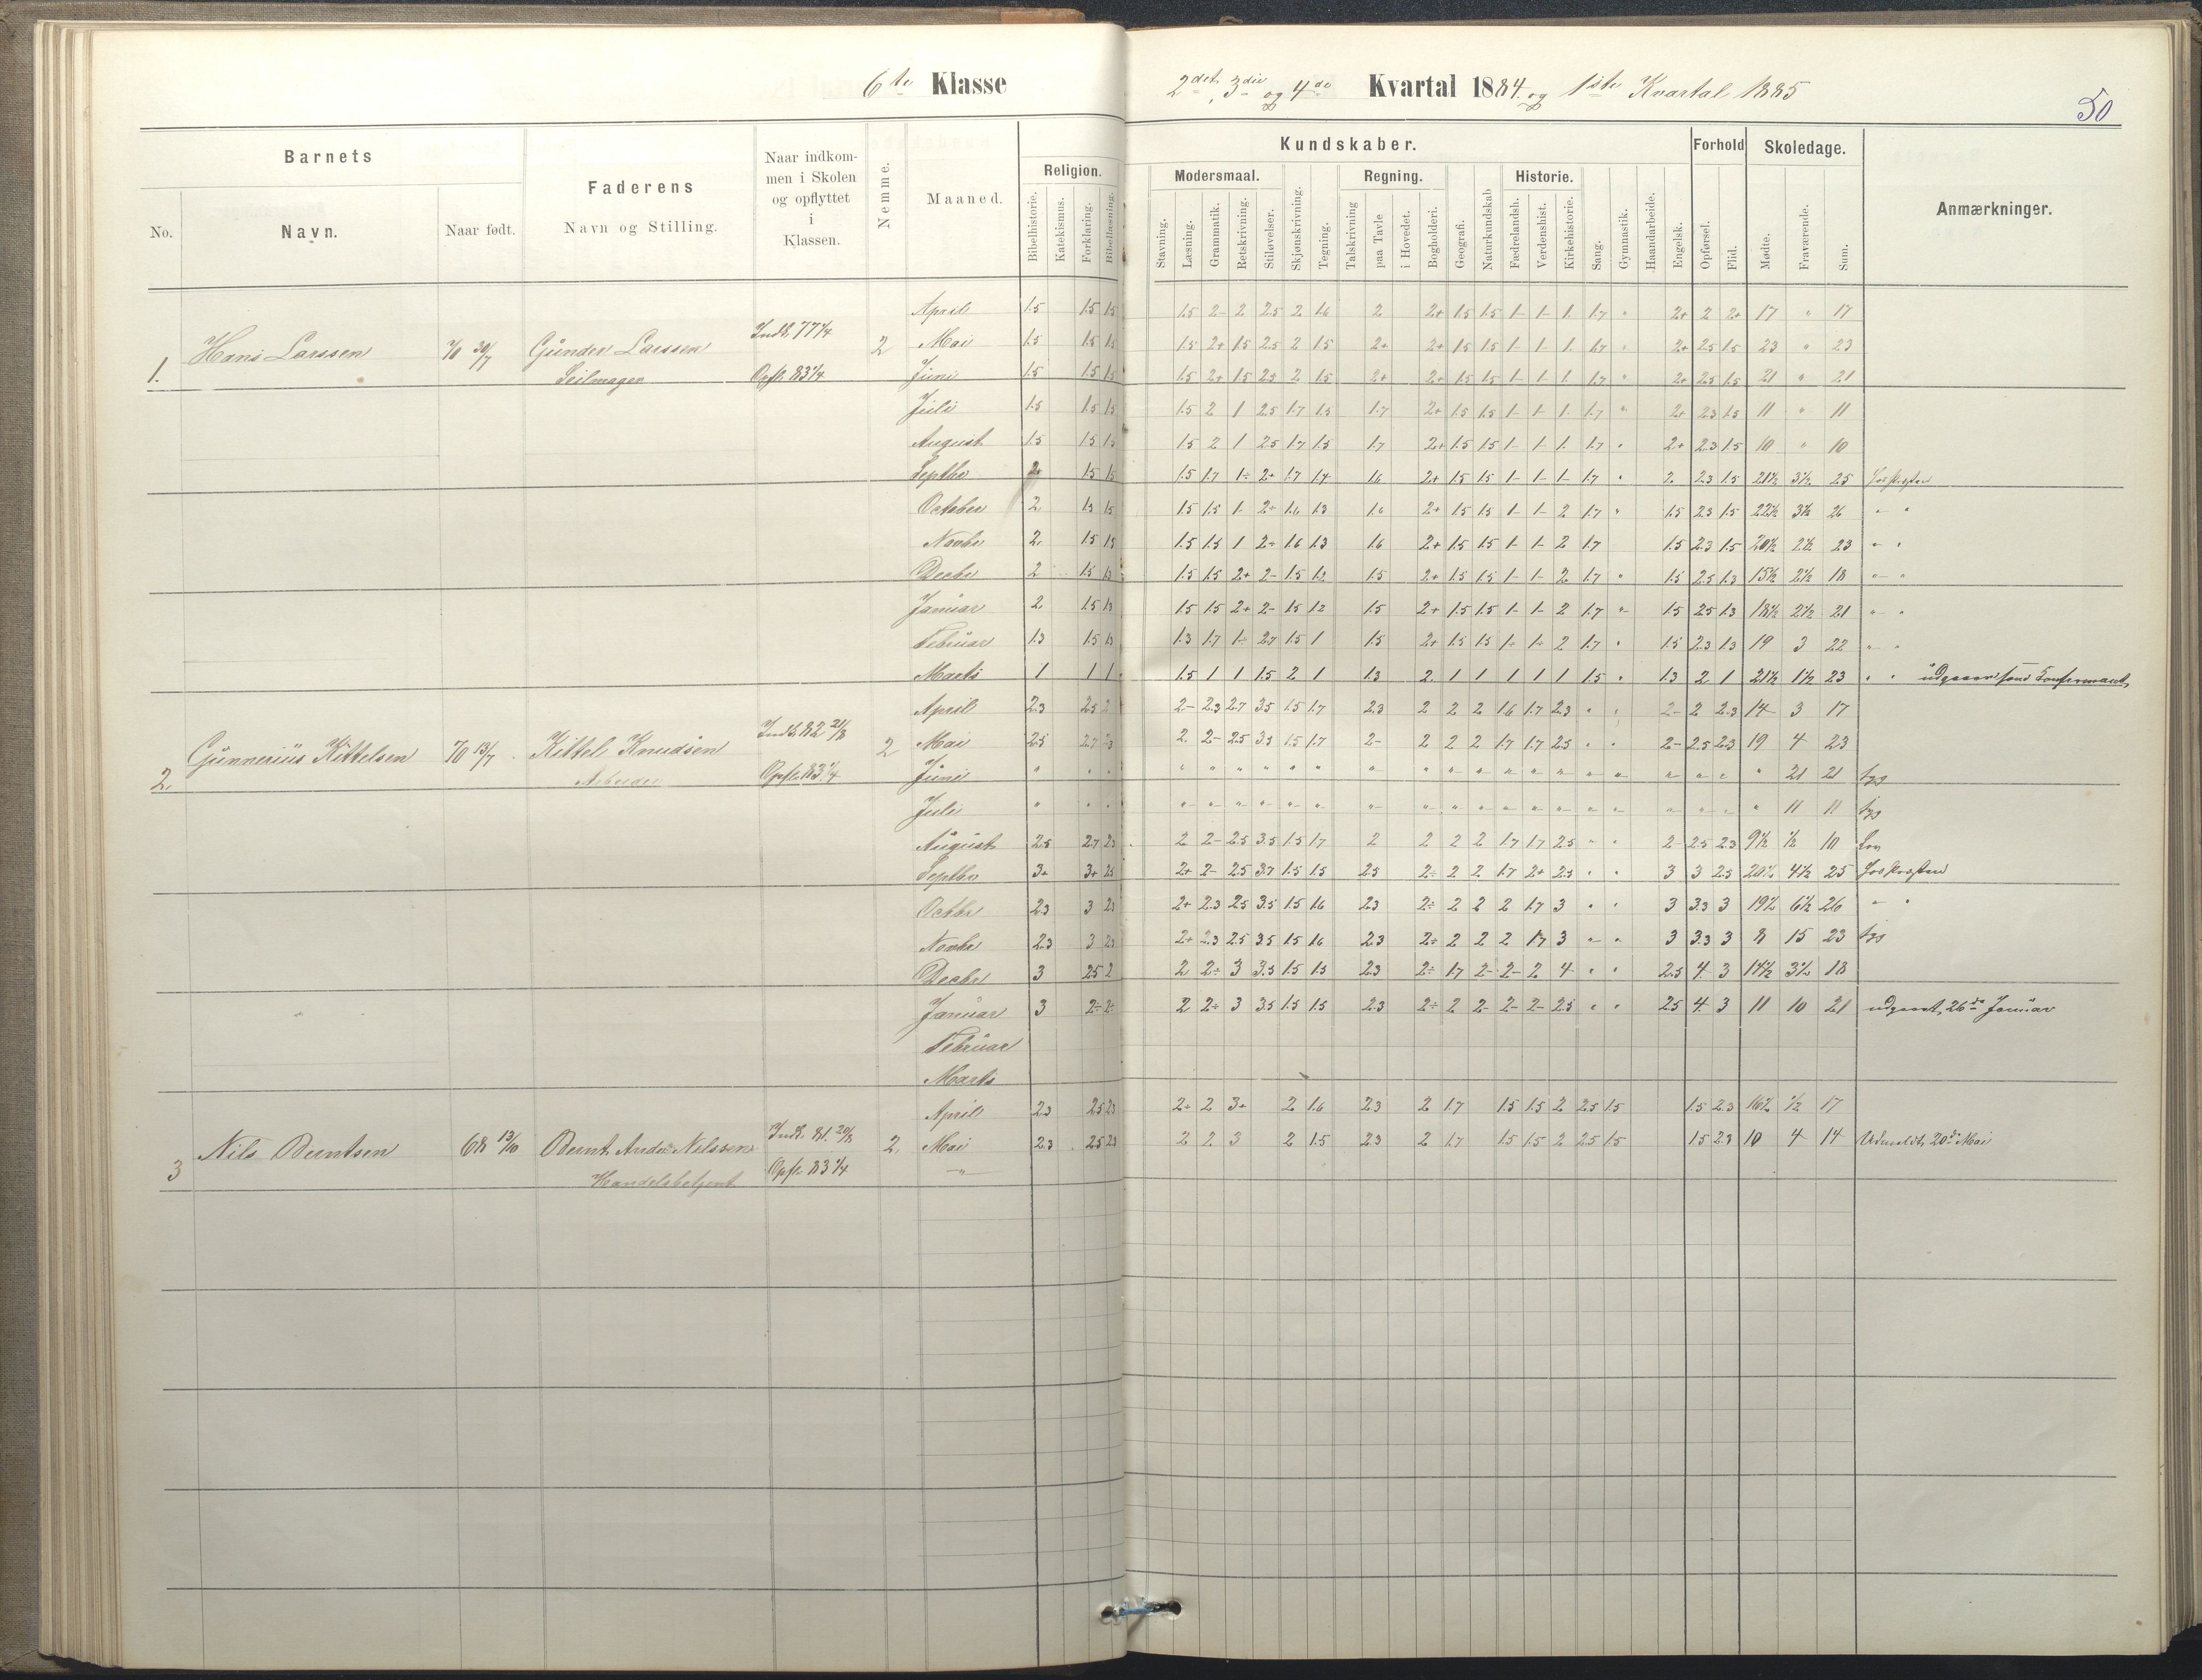 6te Klasse
2det, 3die og 4de Kvartal 1884. og 1ste Kvartal 1885
50
Barnets
Faderens
Naar indkommen i Skolen og opflyttet i Klassen.
Nemme.
Maaned.
Kundskaber.
Forhold
Skoledage.
Anmærkninger.
No.
Navn.
Naar født.
Navn og Stilling.
Religion.
Modersmaal.
Regning.
Historie.
Bibelhistorie.
Katekismus.
Forklaring.
Bibellæsning.
Stavning.
Læsning.
Grammatik.
Retskrivning.
Stiløvelser.
Skjønskrivning.
Tegning.
Talskrivning
paa Tavle
i Hovedet.
Bogholderi.
Geografi.
Naturkundskab
Fædrelandsh.
Verdenshist.
Kirkehistorie.
Sang.
Gymnastik.
Haandarbeide.
Engelsk.
Opførsel.
Flid.
Mødte.
Fraværende.
Sum.
1. Hans Larssen Gunder Larssen Seilmager Indk. 77 1/4 Opfl. 83 1/4 2
April 1.5 1.5 1.5 1.5 2- 2 2.5 2 1.6 2 2+ 1.5 1.5 1- 1- 1. 1.7 " 2+ 2 2+ 17 " 17
Mai 1.5 1.5 1.5 1.5 2+ 1.5 2.5 2 1.5 2+ 2+ 1.5 1.5 1- 1- 1. 1.7 " 2+ 2.5 1.5 23 " 23
Juni 1.5 1.5 1.5 1.5 2+ 1.5 2.3 2 1.5 2+ 2+ 1.5 1.5 1- 1- 1. 1.7 " 2+ 2.5 1.5 21 " 21
Juli 1.5 1.5 1.5 1.5 2 1 2.5 1.7 1.5 1.7 2+ 1.5 1.5 1- 1- 1. 1.7 " 2+ 2.3 1.5 11 " 11
August 1.5 1.5 1.5 1.5 2 1 2.5 1.7 1.5 1.7 2+ 1.5 1.5 1- 1- 1. 1.7 " 2+ 2.3 1.5 10 " 10
Septbr 2+ 1.5 1.5 1.5 1.7 1÷ 2+ 1.7 1.4 1.6 2+ 1.5 1.5 1- 1- 1- 1.7 " 2. 2.3 1.5 21½ 3½ 25 hos Præsten
October 2. 1.5 1.5 1.5 1.5 1- 2÷ 1.6 1.3 1.6 2+ 1.5 1.5 1- 1- 2 1.7 " 1.5 2.3 1.5 22½ 3½ 26 " "
Novbr 2. 1.5 1.5 1.5 1.5 1 2÷ 1.6 1.3 1.6 2+ 1.5 1.5 1- 1- 2 1.7 1.5 2.3 1.5 20½ 2½ 23 " "
Decbr 2 1.5 1.3 1.5 1.5 2+ 2- 1.5 1.2 1.5 2+ 1.5 1.5 1- 1- 2 1.7 " 1.5 2.5 1.3 15½ 2½ 18 " "
Januar 2 1.5 1.3 1.5 1.5 2+ 2- 1.5 1.2 1.5 2+ 1.5 1.5 1- 1- 2 1.7 " 1.5 2.5 1.3 18½ 2½ 21 " "
Februar 1.3 1.5 1.3 1.3 1.7 1÷ 2.7 1.5 1 1.5 2+ 1.5 1.5 1÷ 1÷ 2 1.7 " 1.5 2.3 1.3 19 3 22 " "
Marts 1 1 1 1.5 1 1 1.5 2 1 1.3 2. 1 1 1 1 1 1.5 " 1.3 2 1 21½ 1½ 23 " " udgaar som Confirmant,
2. Gunnerius Kittelsen 70 13/7 Kittel Knudsen Arbeider Indk. 82 21/8 Opfl. 83 1/4 2
April 2.3 2.5 2 2- 2.3 2.7 3.5 1.5 1.7 2.3 2 2 2 1.6 1.7 2.3 " " 2- 2 2.3 14 3 17
Mai 2.5 2.7 2.3 2. 2- 2.5 3.5 1.5 1.7 2- 2 2 2 1.7 1.7 2.5 " " 2- 2.5 2.3 19 4 23
Juni " " " " " " " " " " " " " " " " " " " " " " 21 21 syg
Juli " " " " " " " " " " " " " " " " " " " " " " 11 11 syg
August 2.5 2.7 2.3 2 2- 2.5 3.5 1.5 1.7 2 2 2 2 1.7 1.7 2.5 " " 2- 2.5 2.3 9½ ½ 10
Septbr 3+ 3+ 2.5 2+ 2- 2.5 3.7 1.5 1.5 2.5 2÷ 2 2 1.7 2+ 2.5 " " 3 3 2.5 20½ 4½ 25 hos Præsten
Octbr 2.3 3 2.3 2+ 2.3 2.5 3.5 1.5 1.6 2.3 2÷ 2 2 2 1.7 3 " " 3 3.3 3 19½ 6½ 26 " "
Novbr 2.3 3 2.3 2+ 2.3 2.5 3.5 1.5 1.6 2.3 2÷ 2 2 2 1.7 3 " " 3 3.3 3 8 15 23 syg
Decbr 3 2.5 2 2 2÷ 3 3.5 1.5 1.5 2.3 2÷ 1.7 2- 2- 2 4 " " 2.5 4 3 14½ 3½ 18
Januar 3 2÷ 2÷ 2 2÷ 3 3.5 1.5 1.5 2.3 2÷ 2 2- 2- 2- 2.5 " " 2.5 4. 3 11 10 21 udgaat, 26de Januar
Februar
Marts
3 Nils Berntsen 68 13/10 Bernt Andr. Nelssen Handelsbetjent Indk. 81. 20/8 Opfl. 83 1/4 2.
April 2.3 2.5 2.3 2+ 2 3+ 2 1.6 2.3 2 1.7 1.5 1.5 2 2.5 1.5 1.5 2.3 16½ ½ 17
Mai 2.3 2.5 2.3 2 2 3 2 1.5 2.3 2 1.7 1.5 1.5 2 2.5 1.5 1.5 2.3 10 4 14 Udmeldt, 20de Mai
"